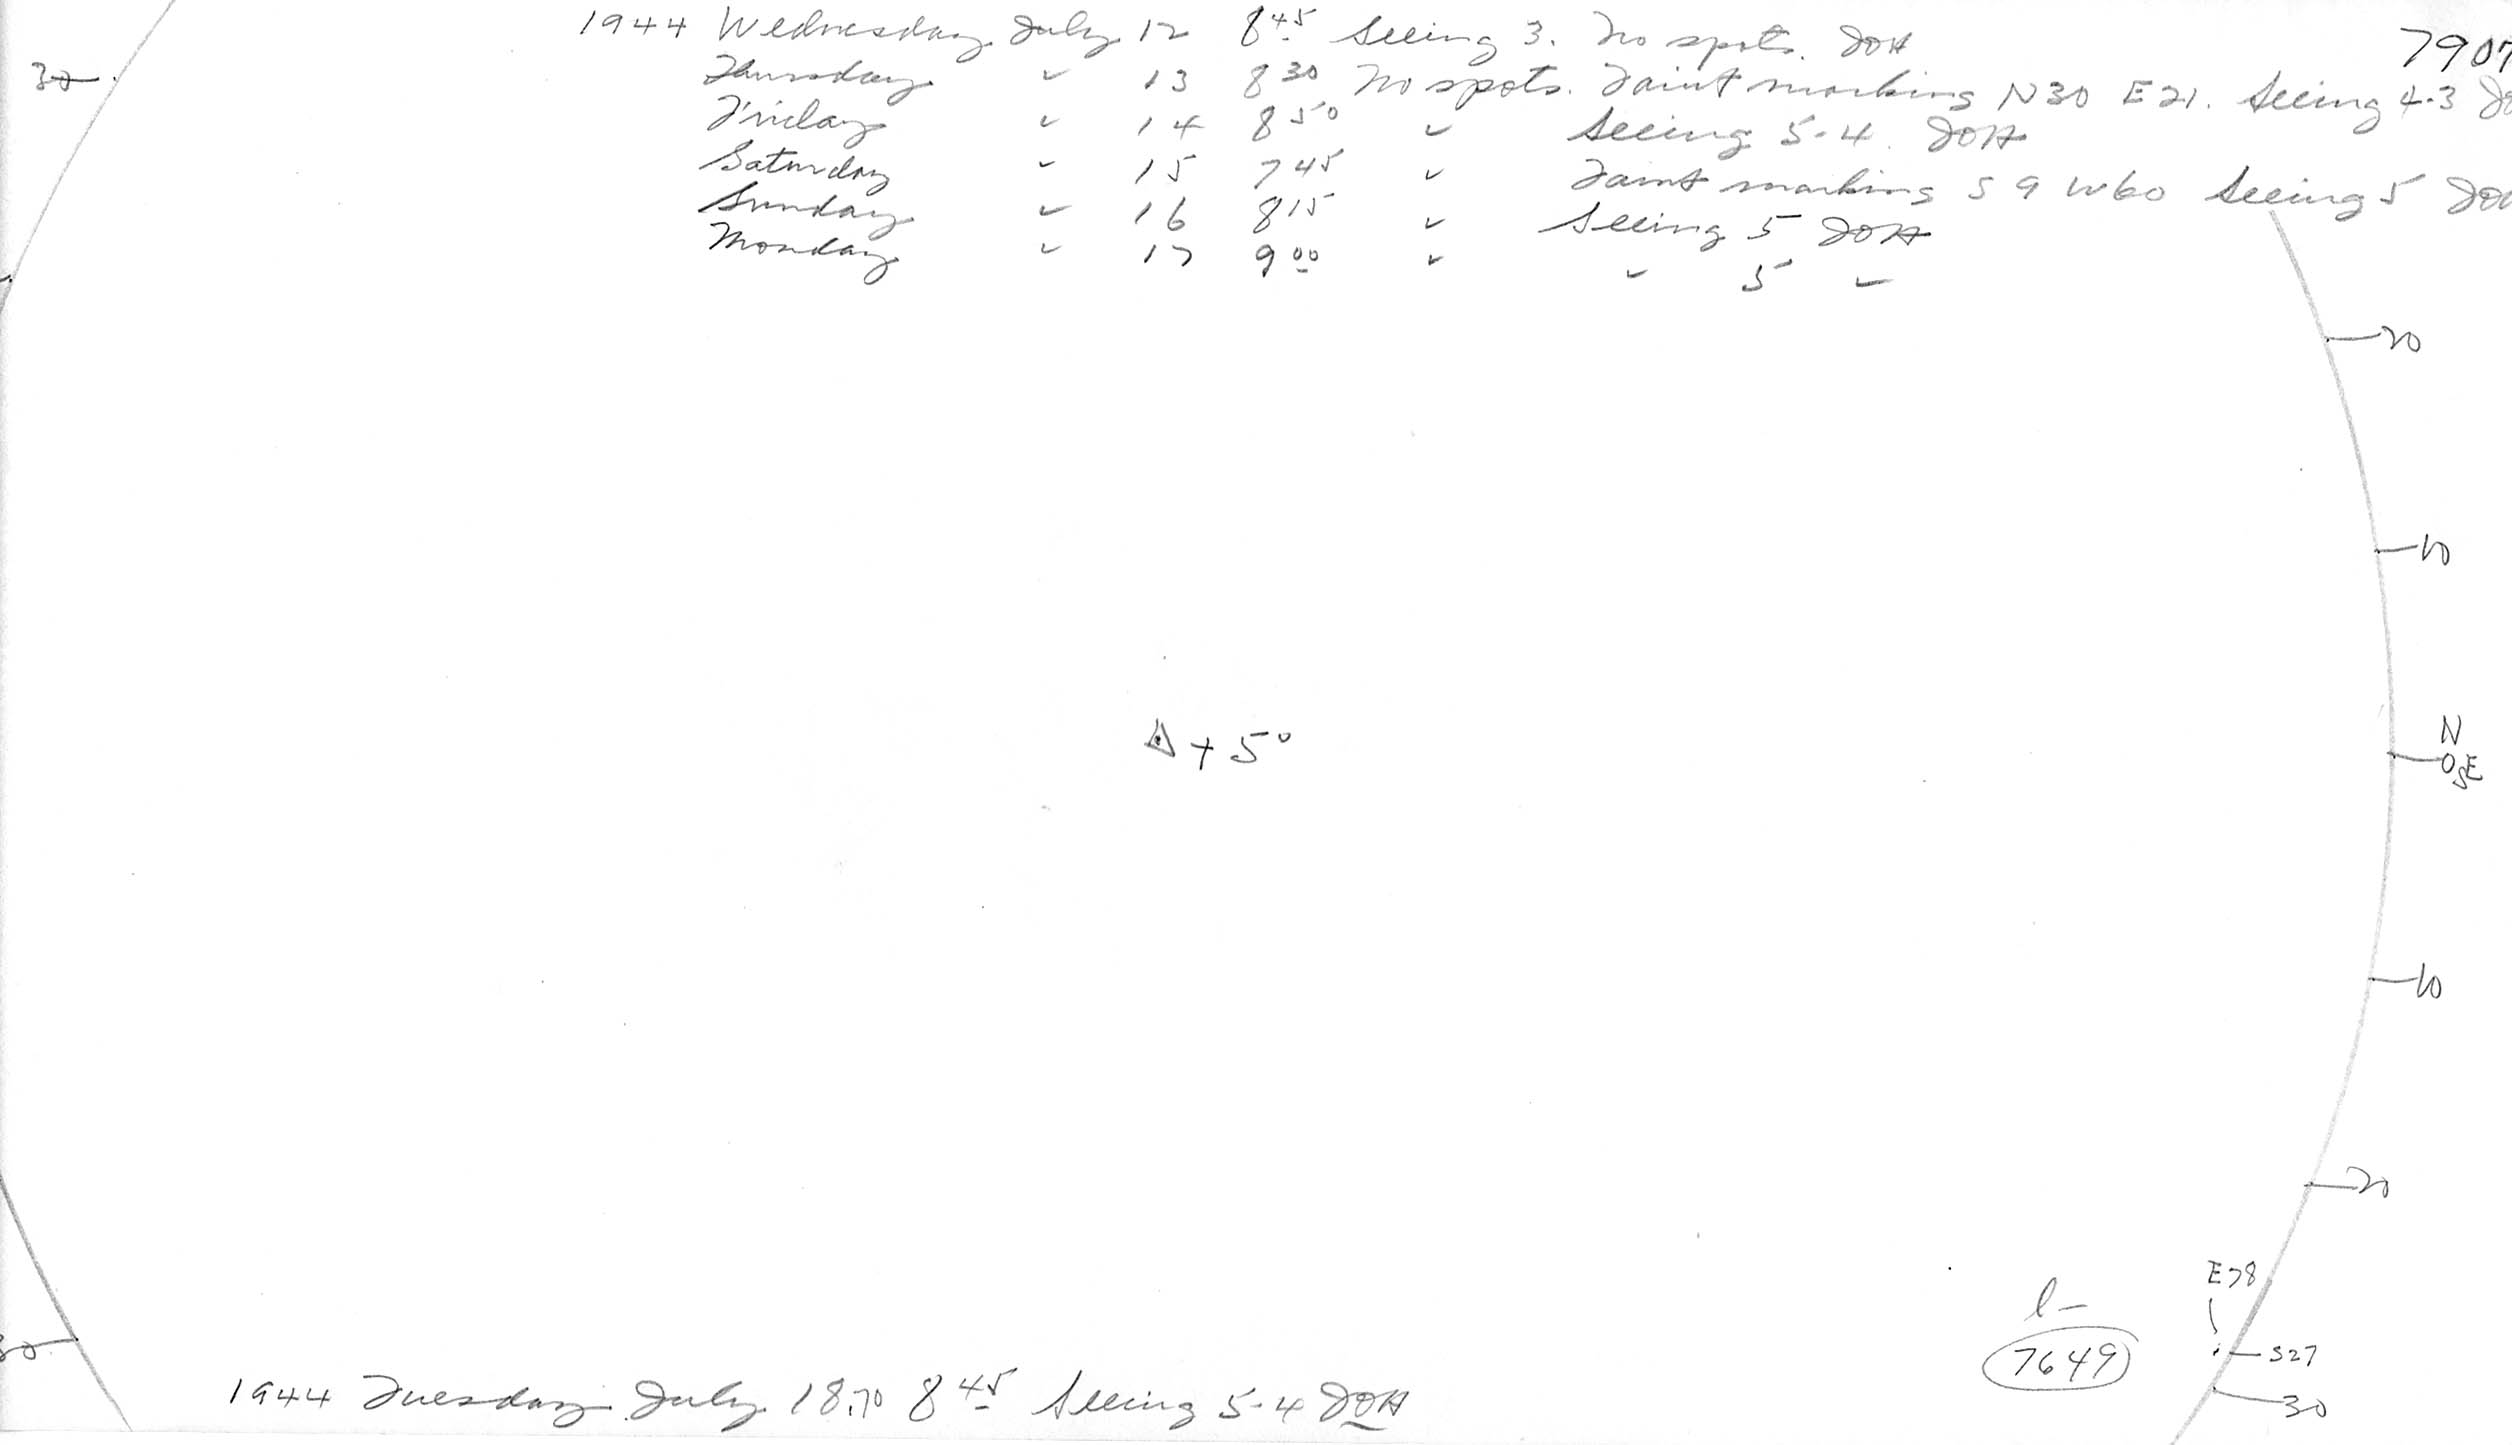 1944 Wednesday July 12 8 45 Seeing 3. No spots. JOH
7907
30
Thursday " 13 8 30 No spots. Faint marking N30 E21. Seeing 4-3
Friday " 14 8 50 " Seeing 5-4. JOH
Saturday " 15 7 45 " Faint marking S9 W60 Seeing 5 JOH
Sunday " 16 8 15 " Seeing 5 JOH
Monday " 17 9 00 " " 5 "
20
10
Δ + 5°
N
0 E
S
10
20
E78
l-
7649
S27
30
30
1944 Tuesday July 18.70 8 45 Seeing 5-4 JOH